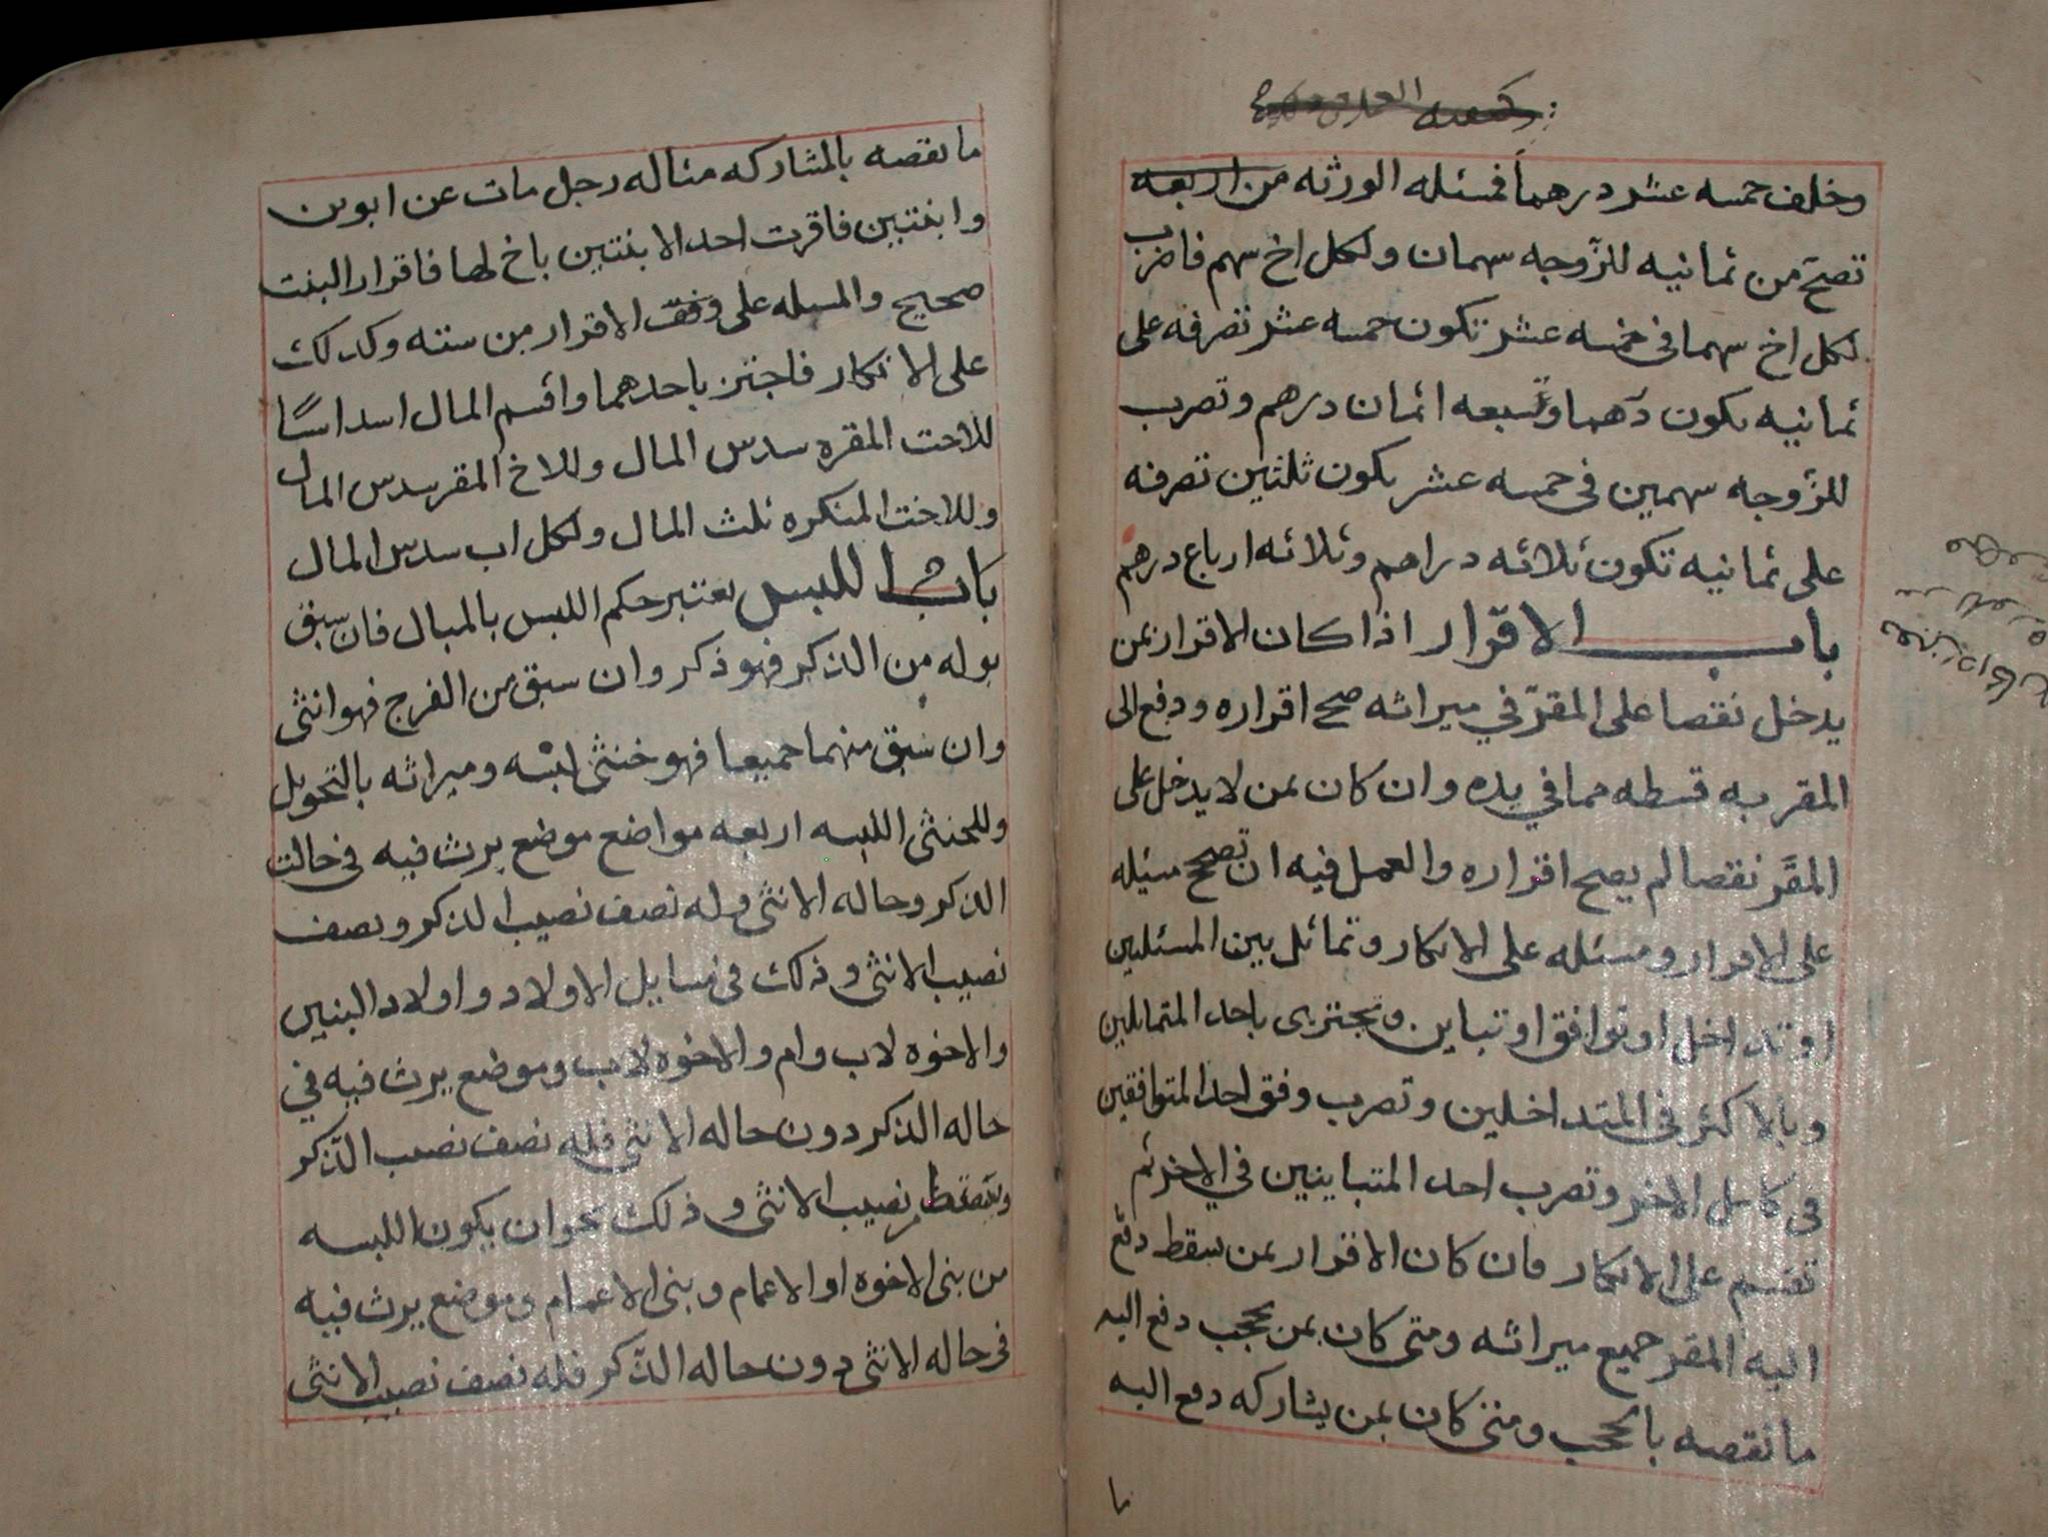 وخلف خمسه عشر درهماً فمسئله الورثه من اربعه
تصحّ من ثمانيه للزّوجه سهمان ولكل اخ سهم فاضرب
لكل اخ سهما في خمسه عشر تكون خمسه عشر تصرفه على
ثمانيه يكون درهما وسبعه اثمان درهم وتصرب
للزّوجه سهمين في خمسه عشر يكون ثلثين تصرفه
على ثمانيه تكون ثلاثه دراهم وثلاثه ارباع درهم
باب الاقرار اذا كان الاقرار بمن
يدخل نقصا على المقرّ في ميراثه صح اقراره ودفع الى
المقر به قسطه مما في يده وان كان بمن لا يدخل على
المقَّر نقصا لم يصح اقراره والعمل فيه ان تصحح مسئله
على الاقرار ومسئله على الانكار وتماثل بين المسئلين
او تداخل او توافق او تباين وتجتزى باحد المتماثلين
وبالاكثر في المتداخلين وتصرب وفق احد المتوافقين
في كامل الاخر وتصرب احد المتباينين في الاخر ثم
تقسم على الانكار فان كان الاقرار بمن يسقط دفع
اليه المقر جميع ميراثه ومتى كان بمن يحجب دفع اليه
ما نقصه بالحجب ومتى كان بمن يشاركه دفع اليه
ما
ما نقصه بالمشاركه مثاله رجل مات عن ابوين
وابنتين فاقرت احد الابنتين باخ لها فاقرار البنت
صحيح والمسله على وفق الاقرار من سته وكذلك
على الانكار فاجتز باحدهما واقسم المال اسداسًا
للاخت المقره سدس المال وللاخ المقر سدس المال
وللاخت المنكره ثلث المال ولكل اب سدس المال
باب اللبس يعتبر حكم اللبس بالمبال فان سبق
بوله من الذكر فهو ذكر وان سبق من الفرج فهو انثى
وان سبق منهما جميعا فهو خنثى لبْسه وميراثه بالتحويل
وللخنثى اللبسه اربعه مواضع موضع يرث فيه في حالت
الذكر وحاله الانثى وله نصف نصيب الذكر ونصف
نصيب الانثى وذلك في مسايل الاولاد واولاد البنين
والاخوه لاب وام والاخوه لاب وموضع يرث فيه في
حاله الذكر دون حاله الانثى فله نصف نصيب الذّكر
ويسقط نصيب الانثى وذلك نحو ان يكون اللبسه
من بنى الاخوه او الاعمام وبنى الاعمام وموضع يرث فيه
في حاله الانثى دون حاله الذّكر فله نصف نصيب الانثى